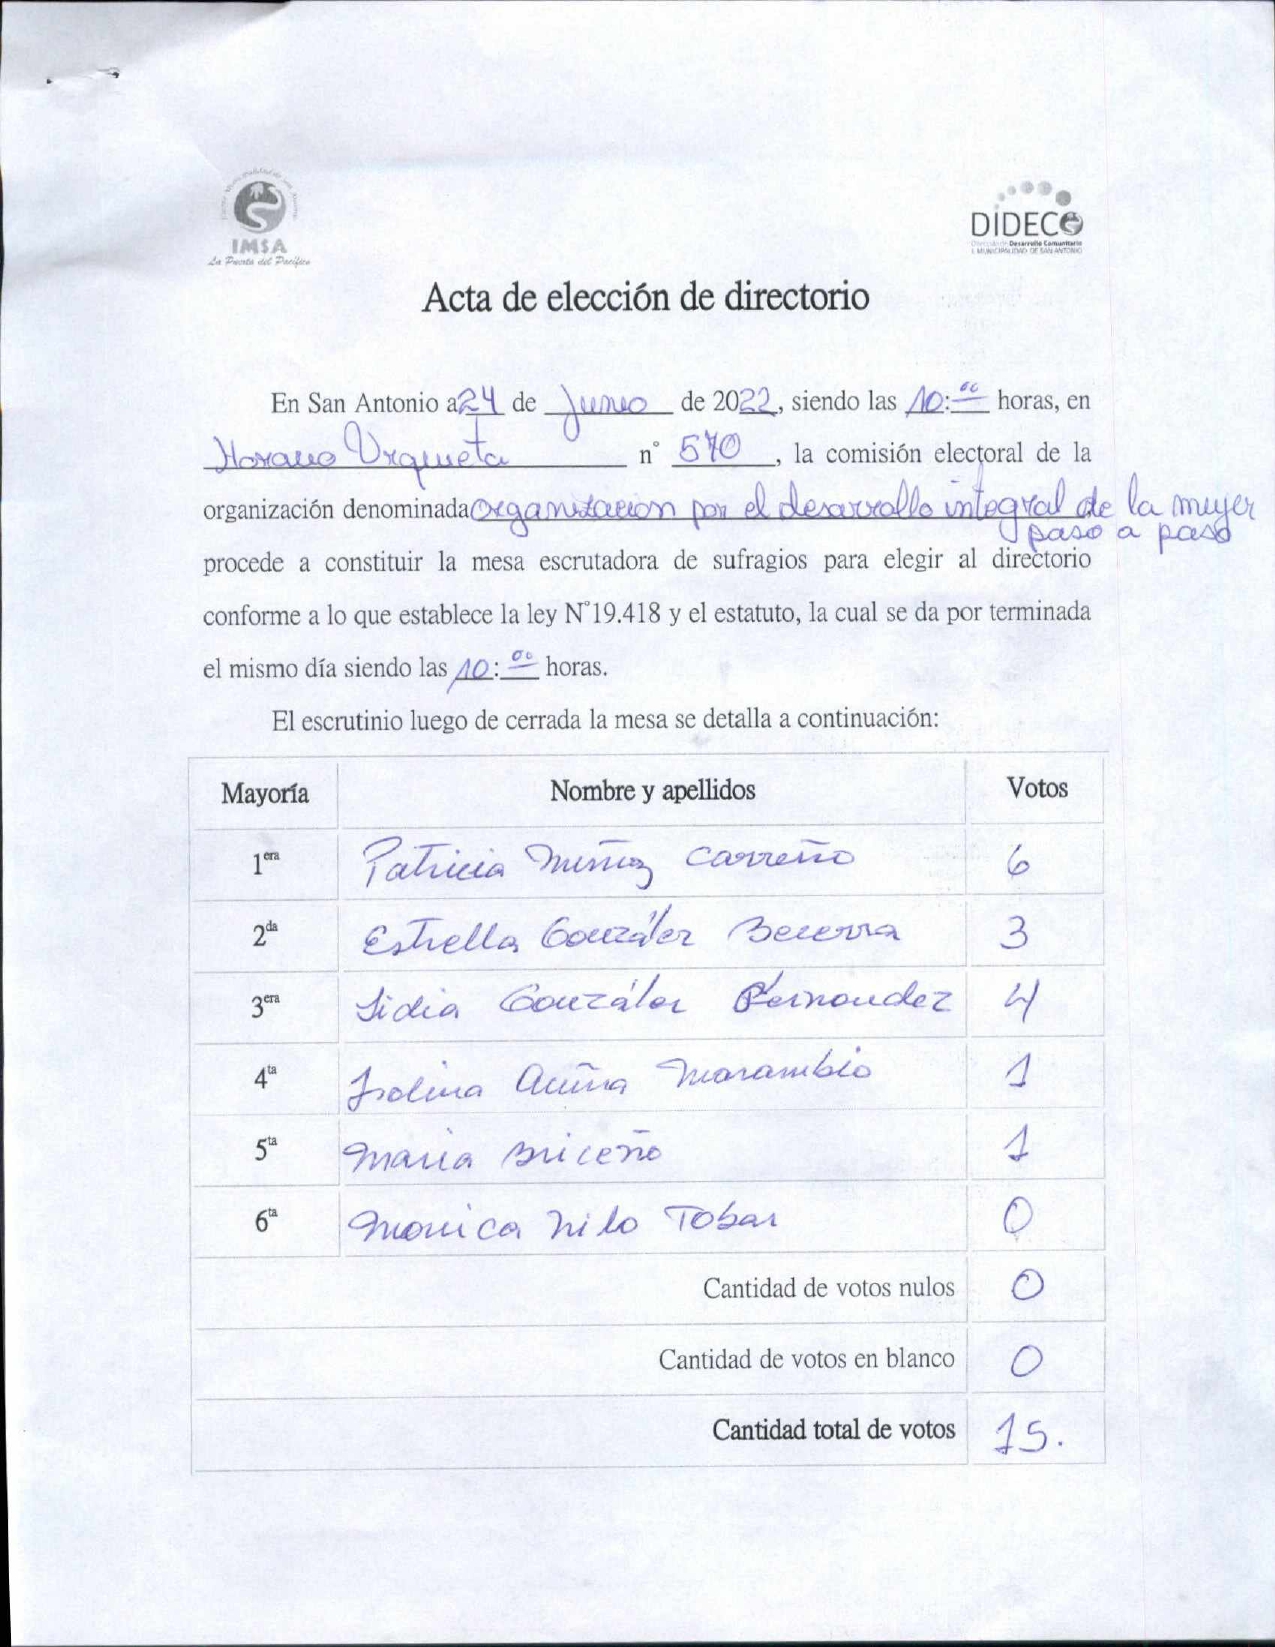 IMSA
La Puerta del Pacífico
DIDECO
Dirección de Desarrollo Comunitario
I. MUNICIPALIDAD DE SAN ANTONIO
Acta de elección de directorio
En San Antonio a 24 de Junio de 2022, siendo las 10:00 horas, en
Horacio Urqueta n° 570, la comisión electoral de la
organización denominada organizacion por el desarrollo integral de la mujer
paso a paso
procede a constituir la mesa escrutadora de sufragios para elegir al directorio
conforme a lo que establece la ley N°19.418 y el estatuto, la cual se da por terminada
el mismo día siendo las 10:00 horas.
El escrutinio luego de cerrada la mesa se detalla a continuación:
Mayoría Nombre y apellidos Votos
1era Patricia Muñoz Carreño 6
2da Estrella González Becerra 3
3era Lidia González Fernandez 4
4ta Isolina Acuña Marambio 1
5ta Maria Briceño 1
6ta Monica Nilo Tobar 0
Cantidad de votos nulos 0
Cantidad de votos en blanco 0
Cantidad total de votos 15.